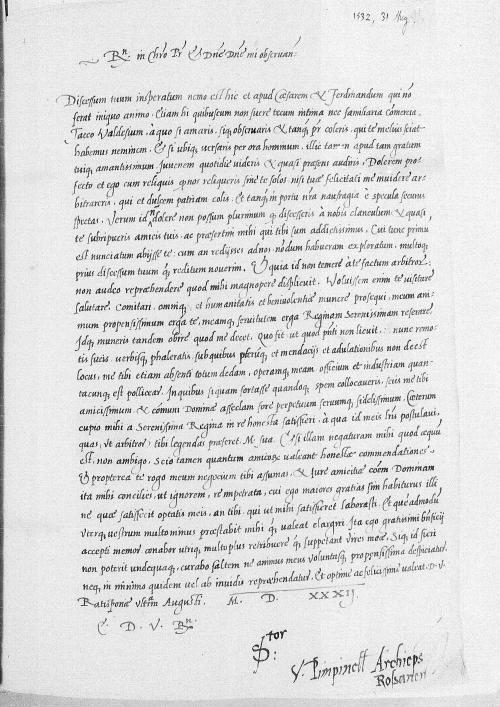 1532, 31 Aug.
R.n in Chro Pr & Dne Dne mi observan.
Discessum tuum insperatum nemo est hic et apud Cæsarem & Ferdinandum qui no
ferat iniquo animo. Etiam hi quibuscum non fuere tecum intima nec familiaria comercia.
Taceo Valdesium, à quo si amaris, siq; observaris & tanq; pr coleris, qui te melius sciat
habemus neminem. Et si ubiq; versaris per ora hominum. ille tam apud tam gratum
tuiq; amantissimum Juvenem quotidie videris & quasi præsens audiris. Dolerem pro-
fecto et ego cum reliquis quos reliqueris sine te solos nisi tuæ felicitati me invidere ar-
bitrareris, qui et dulcem patriam colis. et tanq; in portu nra naufragia è specula securus
spectas. Verum id dolere non possum plurimum q; discesseris à nobis clanculum & quasi
te subripueris amicis tuis. ac præsertim mihi qui tibi sum addictissimus. Cui tunc primu
est nunciatum abijsse te: cum an redijsses ad nos, nodum habueram exploratum, multoq;
prius discessum tuum q; reditum noverim. Quia id non temere à te factum arbitror:
non audeo repræhendere quod mihi magnopere displicuit. Voluissem enim te visitare
salutare. Comitari. omniq; et humanitatis et benivolentiæ munere prosequi. meum ani-
mum propensissimum erga te, meamq; servitutem erga Reginam Serenissimam referre.
Idq; muneris tandem obire quod me decet. Quo fit ut quod pnti non licuit: nunc remo-
tis fucis verbisq; phaleratis. sub quibus pleruq; et mendacijs et adulationibus non deest
locus, me tibi etiam absenti totum dedam, operamq; meam officium et industriam quan-
tacunq; est pollicear. In quibus si quam fortasse quandoq; spem collocaveris, scies me tibi
amicissimum & comuni Dominæ asseclam fore perpetuum servumq; fidelissimum. Cæterum
cupio mihi à Serenissima Regina in re honesta satisfieri. à qua id meis lris postulavi.
quas, ut arbitror, tibi legendas præferet M. sua. Et si illam negaturam mihi quod æquu
est, non ambigo. Scio tamen quantum amicose valeant honestæ commendationes.
Quapropter à te rogo meum negocium tibi assumas, & iure amicitiæ coem Dominam
ita mihi concilies, ut ignorem, re impetrata, cui ego maiores gratias sim habiturus illi
ne quæ satisfecit optatis meis, an tibi. qui ut mihi satisfieret laborasti. Et quèadmodu
uterq; vestrum multo minus præstabit mihi q; valeat elargiri. Ita ego gratissimi bnficij
accepti memor conabor utriq; multo plus retribuere q; suppetant vires meæ. Sicq; id fieri
non poterit undequaq; curabo saltem ne animus meus voluntasq; propensissima despiciatur.
neq; in minimo quidem vel ab invido repræhendatur. Et optime ac felicissime valeat D. V.
Ratisponæ ultim Augusti. M. D. XXXIJ.
E. D. V. R.n
S.tor
V. Pimpinell Archieps
Rossanen